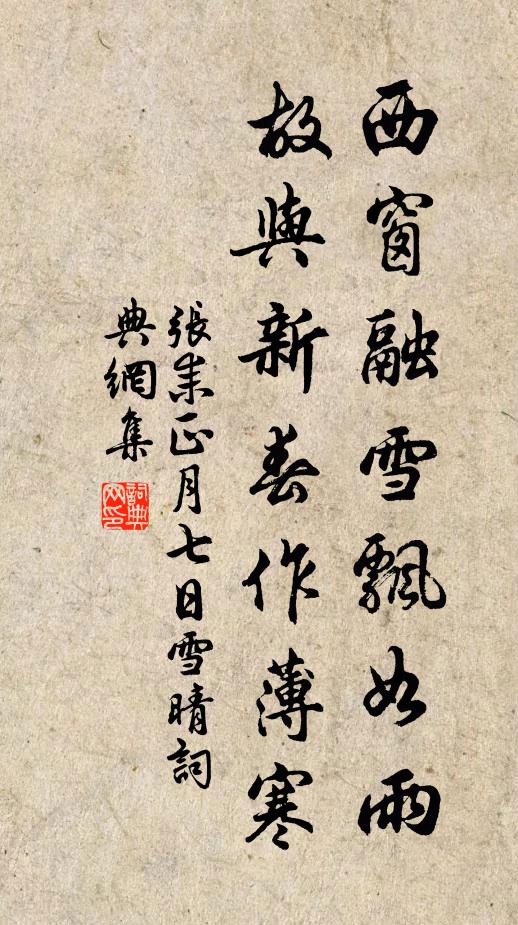 西窗融雪飄如雨
故與新春作薄寒
張耒正月七日雪晴詞
典網集
詞典網印